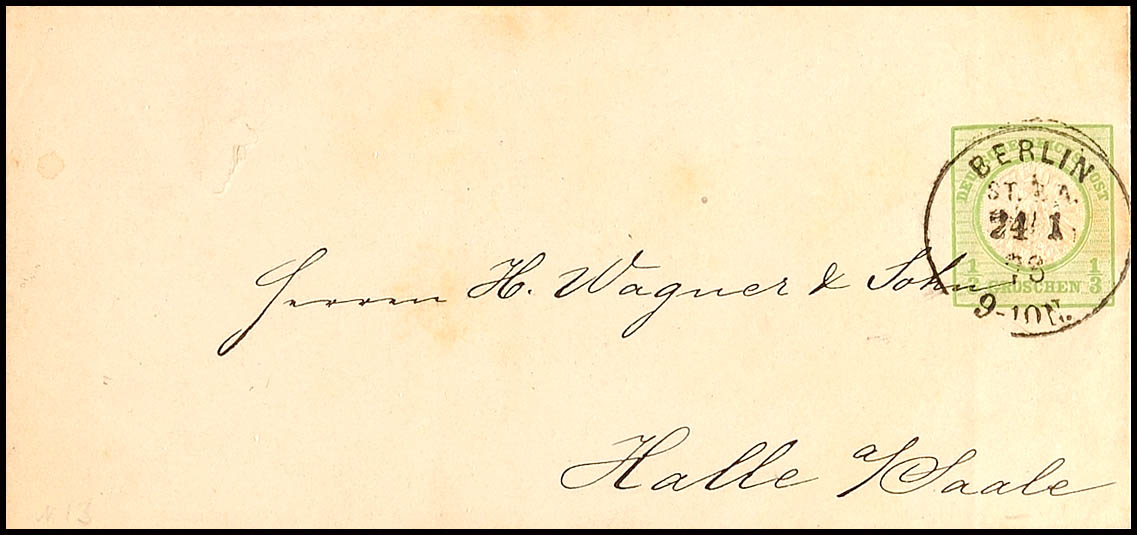 BERLIN
24 1
9-10N.
DEUTSCHE REICHS-POST
1/3 GROSCHEN 1/3
Herren H. Wagner & Sohn
Halle a/Saale